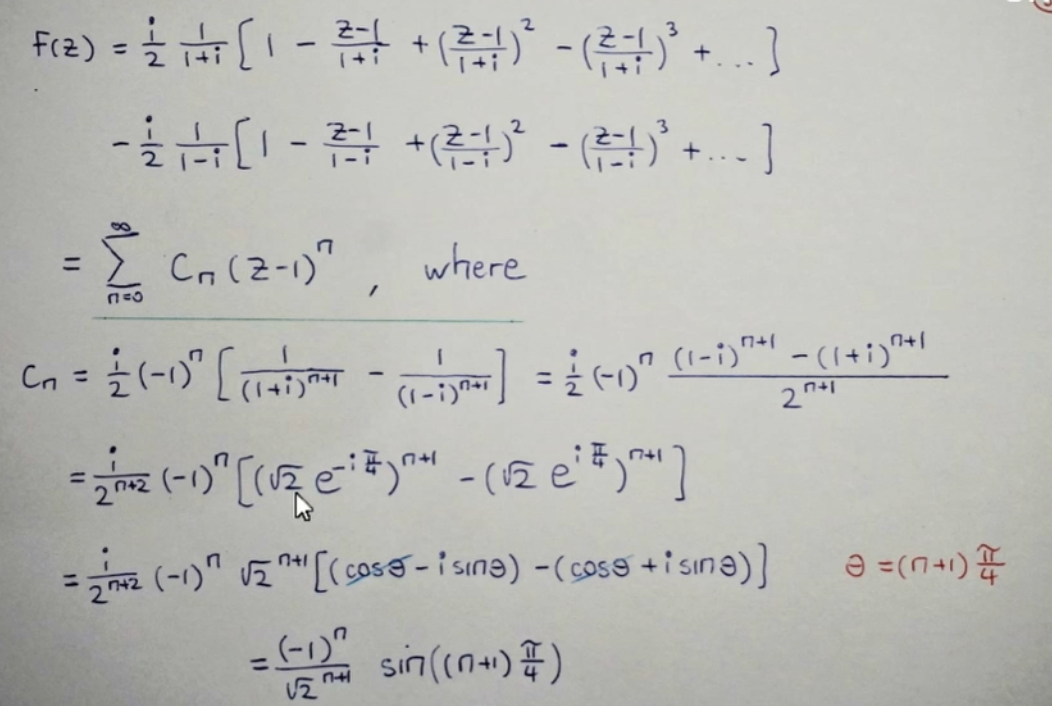 F(z) = i/2 1/(1+i) [ 1 - (z-1)/(1+i) + ((z-1)/(1+i))^2 - ((z-1)/(1+i))^3 + ... ]
- i/2 1/(1-i) [ 1 - (z-1)/(1-i) + ((z-1)/(1-i))^2 - ((z-1)/(1-i))^3 + ... ]
= ∑_{n=0}^{∞} C_n (z-1)^n , where
C_n = i/2 (-1)^n [ 1/(1+i)^{n+1} - 1/(1-i)^{n+1} ] = i/2 (-1)^n ((1-i)^{n+1} - (1+i)^{n+1})/2^{n+1}
= i/2^{n+2} (-1)^n [ (√2 e^{-i π/4})^{n+1} - (√2 e^{i π/4})^{n+1} ]
= i/2^{n+2} (-1)^n √2^{n+1} [ (cosθ - i sinθ) - (cosθ + i sinθ) ] θ = (n+1) π/4
= (-1)^n/√2^{n+1} sin((n+1) π/4)